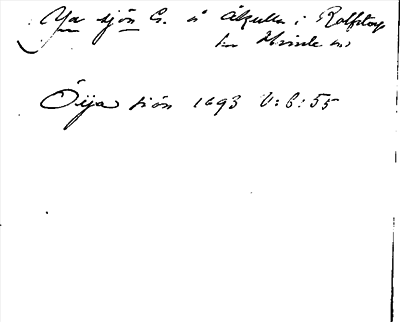 Ya sjön G. å Åkulla i Rolfstorp
sn Himle hd
Öija siön 1693 V:6:55